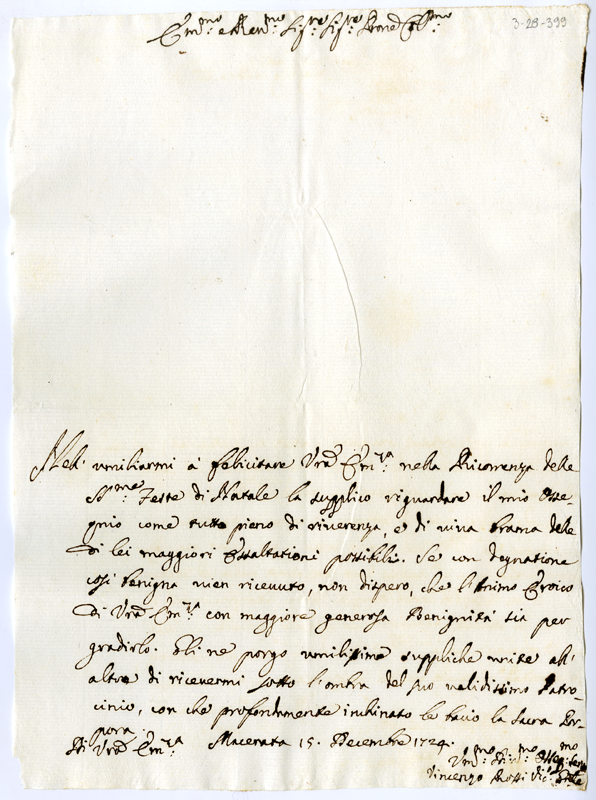 3-28-399
Em.mo e Rev.mo Sig.re Sig.re Prone Col.mo
Nell' umiliarmi à felicitare Vrã Em.za nella Ricorrenza delle
SS.me Feste di Natale la supplico riguardare il mio Osse-
quio come tutto pieno di riverenza, e di viva brama delle
di lei maggiori Essaltationi possibili. Se con degnatione
così benigna vien ricevuto, non dispero, che l'Animo Eroico
di Vrã Em.za con maggiore generosa Benignità sia per
gradirlo. Gli ne porgo umilissime suppliche unite all'
altre di ricevermi sotto l'ombra del suo validissimo Patro-
cinio, con che profondamente inclinato le bacio la Sacra Por-
pora.
Di Vrã Em.za Macerata 15. Decembre 1724.
Um.mo Di.mo Osseq.mo
Vincenzo Rossi Vic.